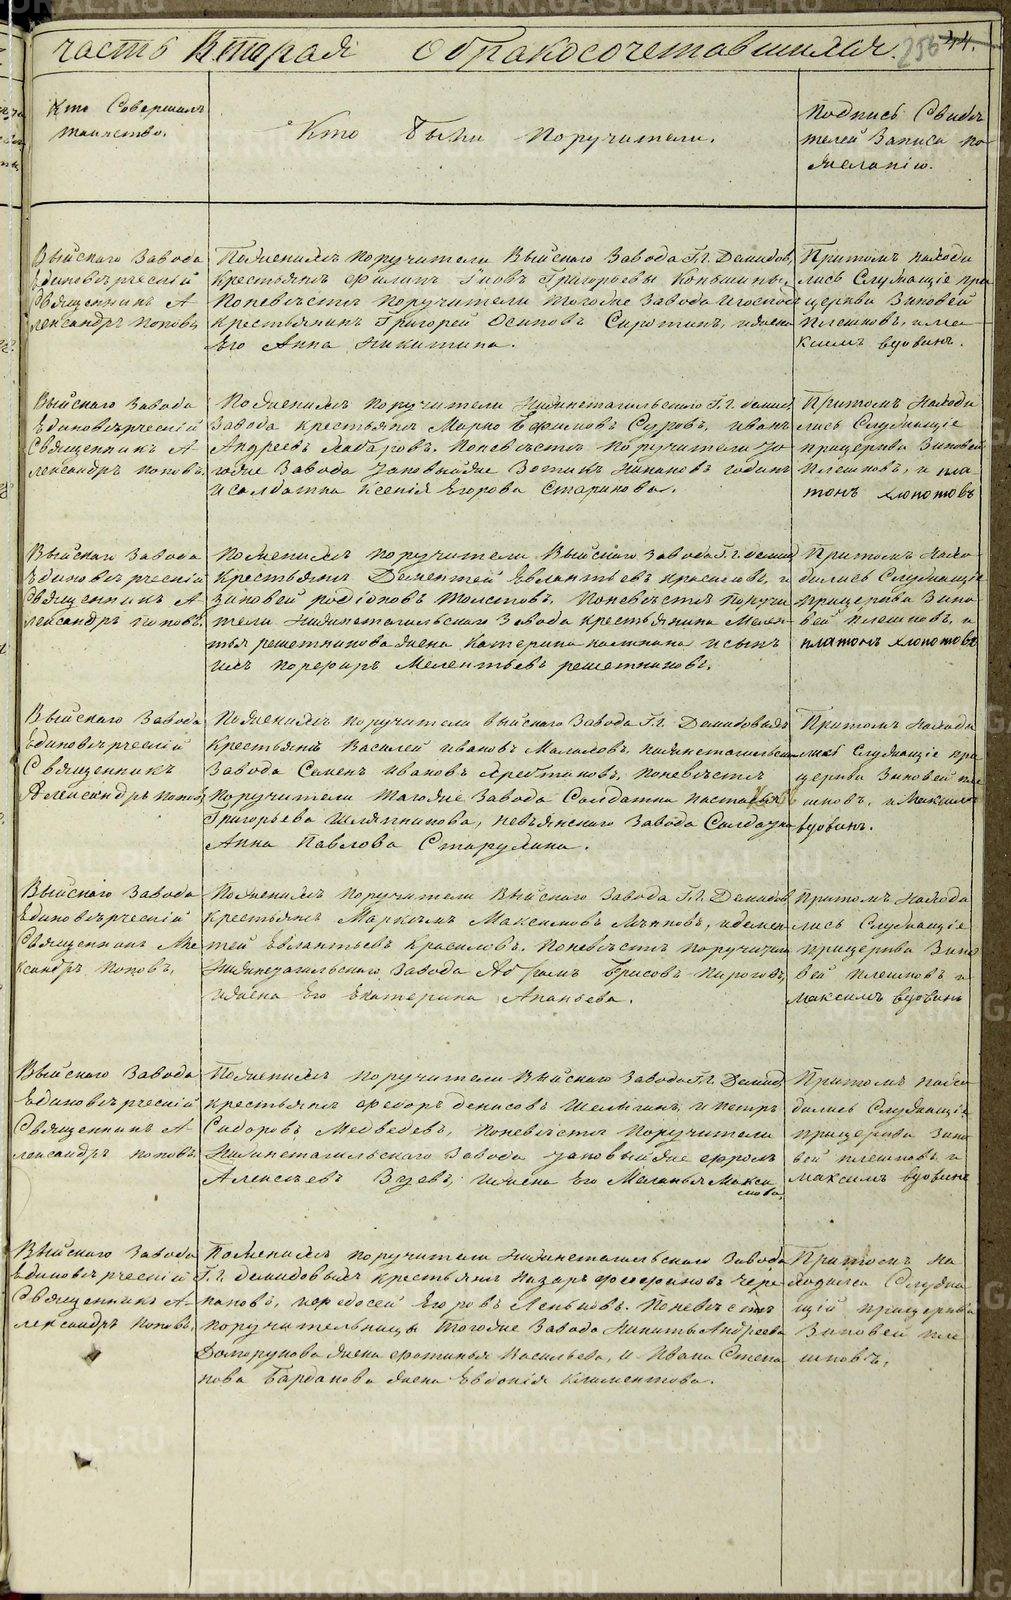 часть Вторая о бракосочетавшихся.
256 44.
Кто Совершалъ
таинство.
Кто были поручители.
Подпись Свидѣ
телей Записи по
желанію.
Выйскаго Завода
Единовѣрческій
Священникъ А
лександръ Поповъ
По женихѣ поручители Выйскаго Завода Г.г. Демидов.
крестьяне Филипъ Григорьевы
По невѣстѣ поручители тогоже завода
крестьянинъ Григорей Осиповъ Сиротинъ, и жена
Его Анна Никитина.
При томъ находи
лись Служащіе при
церкви Зиновей
Плешковъ, и Ма
ксимъ Вдовинъ.
Выйскаго Завода
Единовѣрческій
Священникъ А
лександръ Поповъ
По женихѣ поручители Нижнетагильскаго Г.г. Демид.
Завода крестьяне Марко Ефимовъ Суровъ, Иванъ
Андреевъ По невѣстѣ поручители то
гоже Завода
и солдатка Ксенія Егорова Старикова.
При томъ Находи
лись Служащіе
при церкви Зиновей
Плешковъ, и Пла
тонъ Хлопотовъ
Выйскаго Завода
Единовѣрческій
Священникъ А
лександръ Поповъ
По женихѣ поручители Выйскаго завода Г.г. Демид
крестьяне Дементей Евлантьевъ Красиловъ, и
Зиновей Родіоновъ Толстовъ, По невѣстѣ поручи
тели Нижнетагильскаго Завода крестьянина Мелен
тья Решетникова жена Катерина и сынъ
ихъ Порфиръ Мелентьевъ Решетниковъ.
При томъ Нахо
дились Служащіе
при церкви Зино
вей Плешковъ, и
Платонъ Хлопотовъ
Выйскаго Завода
Единовѣрческій
Священникъ
Александръ Поповъ
По женихѣ поручители Выйскаго Завода Г.г. Демидовыхъ
Крестьяне Василей Ивановъ Малаховъ, Нижнетагильска
Завода Семенъ Ивановъ По невѣстѣ
поручители тогоже Завода Солдатка Настасья
Григорьева Шляпникова, Невьянскаго Завода Солдатка
Анна Павлова Старухина.
При томъ Находи
лись Служащіе при
церкви Зиновей Пле
шковъ, и Максимъ
Вдовинъ.
Выйскаго Завода
Единовѣрческій
Священникъ Але
ксандръ Поповъ.
По женихѣ поручители Выйскаго Завода Г.г. Демидов
крестьяне Максимовъ и Демен
тей Евлантьевъ Красиловъ. По невѣстѣ поручители
Нижнетагильскаго Завода Абрамъ Борисовъ Пироговъ,
и жена Его Екатерина Ананьева.
При томъ Находи
лись Служащіе
при церкви Зино
вей Плешковъ и
Максимъ Вдовинъ
Выйскаго Завода
Единовѣрческій
Священникъ А
лександръ Поповъ.
По женихѣ поручители Выйскаго Завода Г.г. Демид
крестьяне Федоръ Денисовъ и Петръ
Сидоровъ Медведевъ, По невѣстѣ Поручители
Нижнетагильскаго Завода
Алексѣевъ и жена Его Маланья Макси
мова.
При томъ Нахо
дились Служащіе
при церкви Зино
вей Плешковъ и
Максимъ Вдовинъ
Выйскаго Завода
Единовѣрческій
Священникъ А
лександръ Поповъ.
По женихѣ поручители Нижнетагильскаго Завода
Г.г. Демидовыхъ крестьяне Назаръ Чере
пановъ, и Федосей Егоровъ По невѣстѣ
поручительницы тогоже Завода Никиты Андреева
Долгорукова жена Фотинья Васильева, и Ивана Степа
нова жена Евдокія Климентова.
При томъ На
ходился Служа
щій при церкви
Зиновей Пле
шковъ,
METRIKI.GASO-URAL.RU